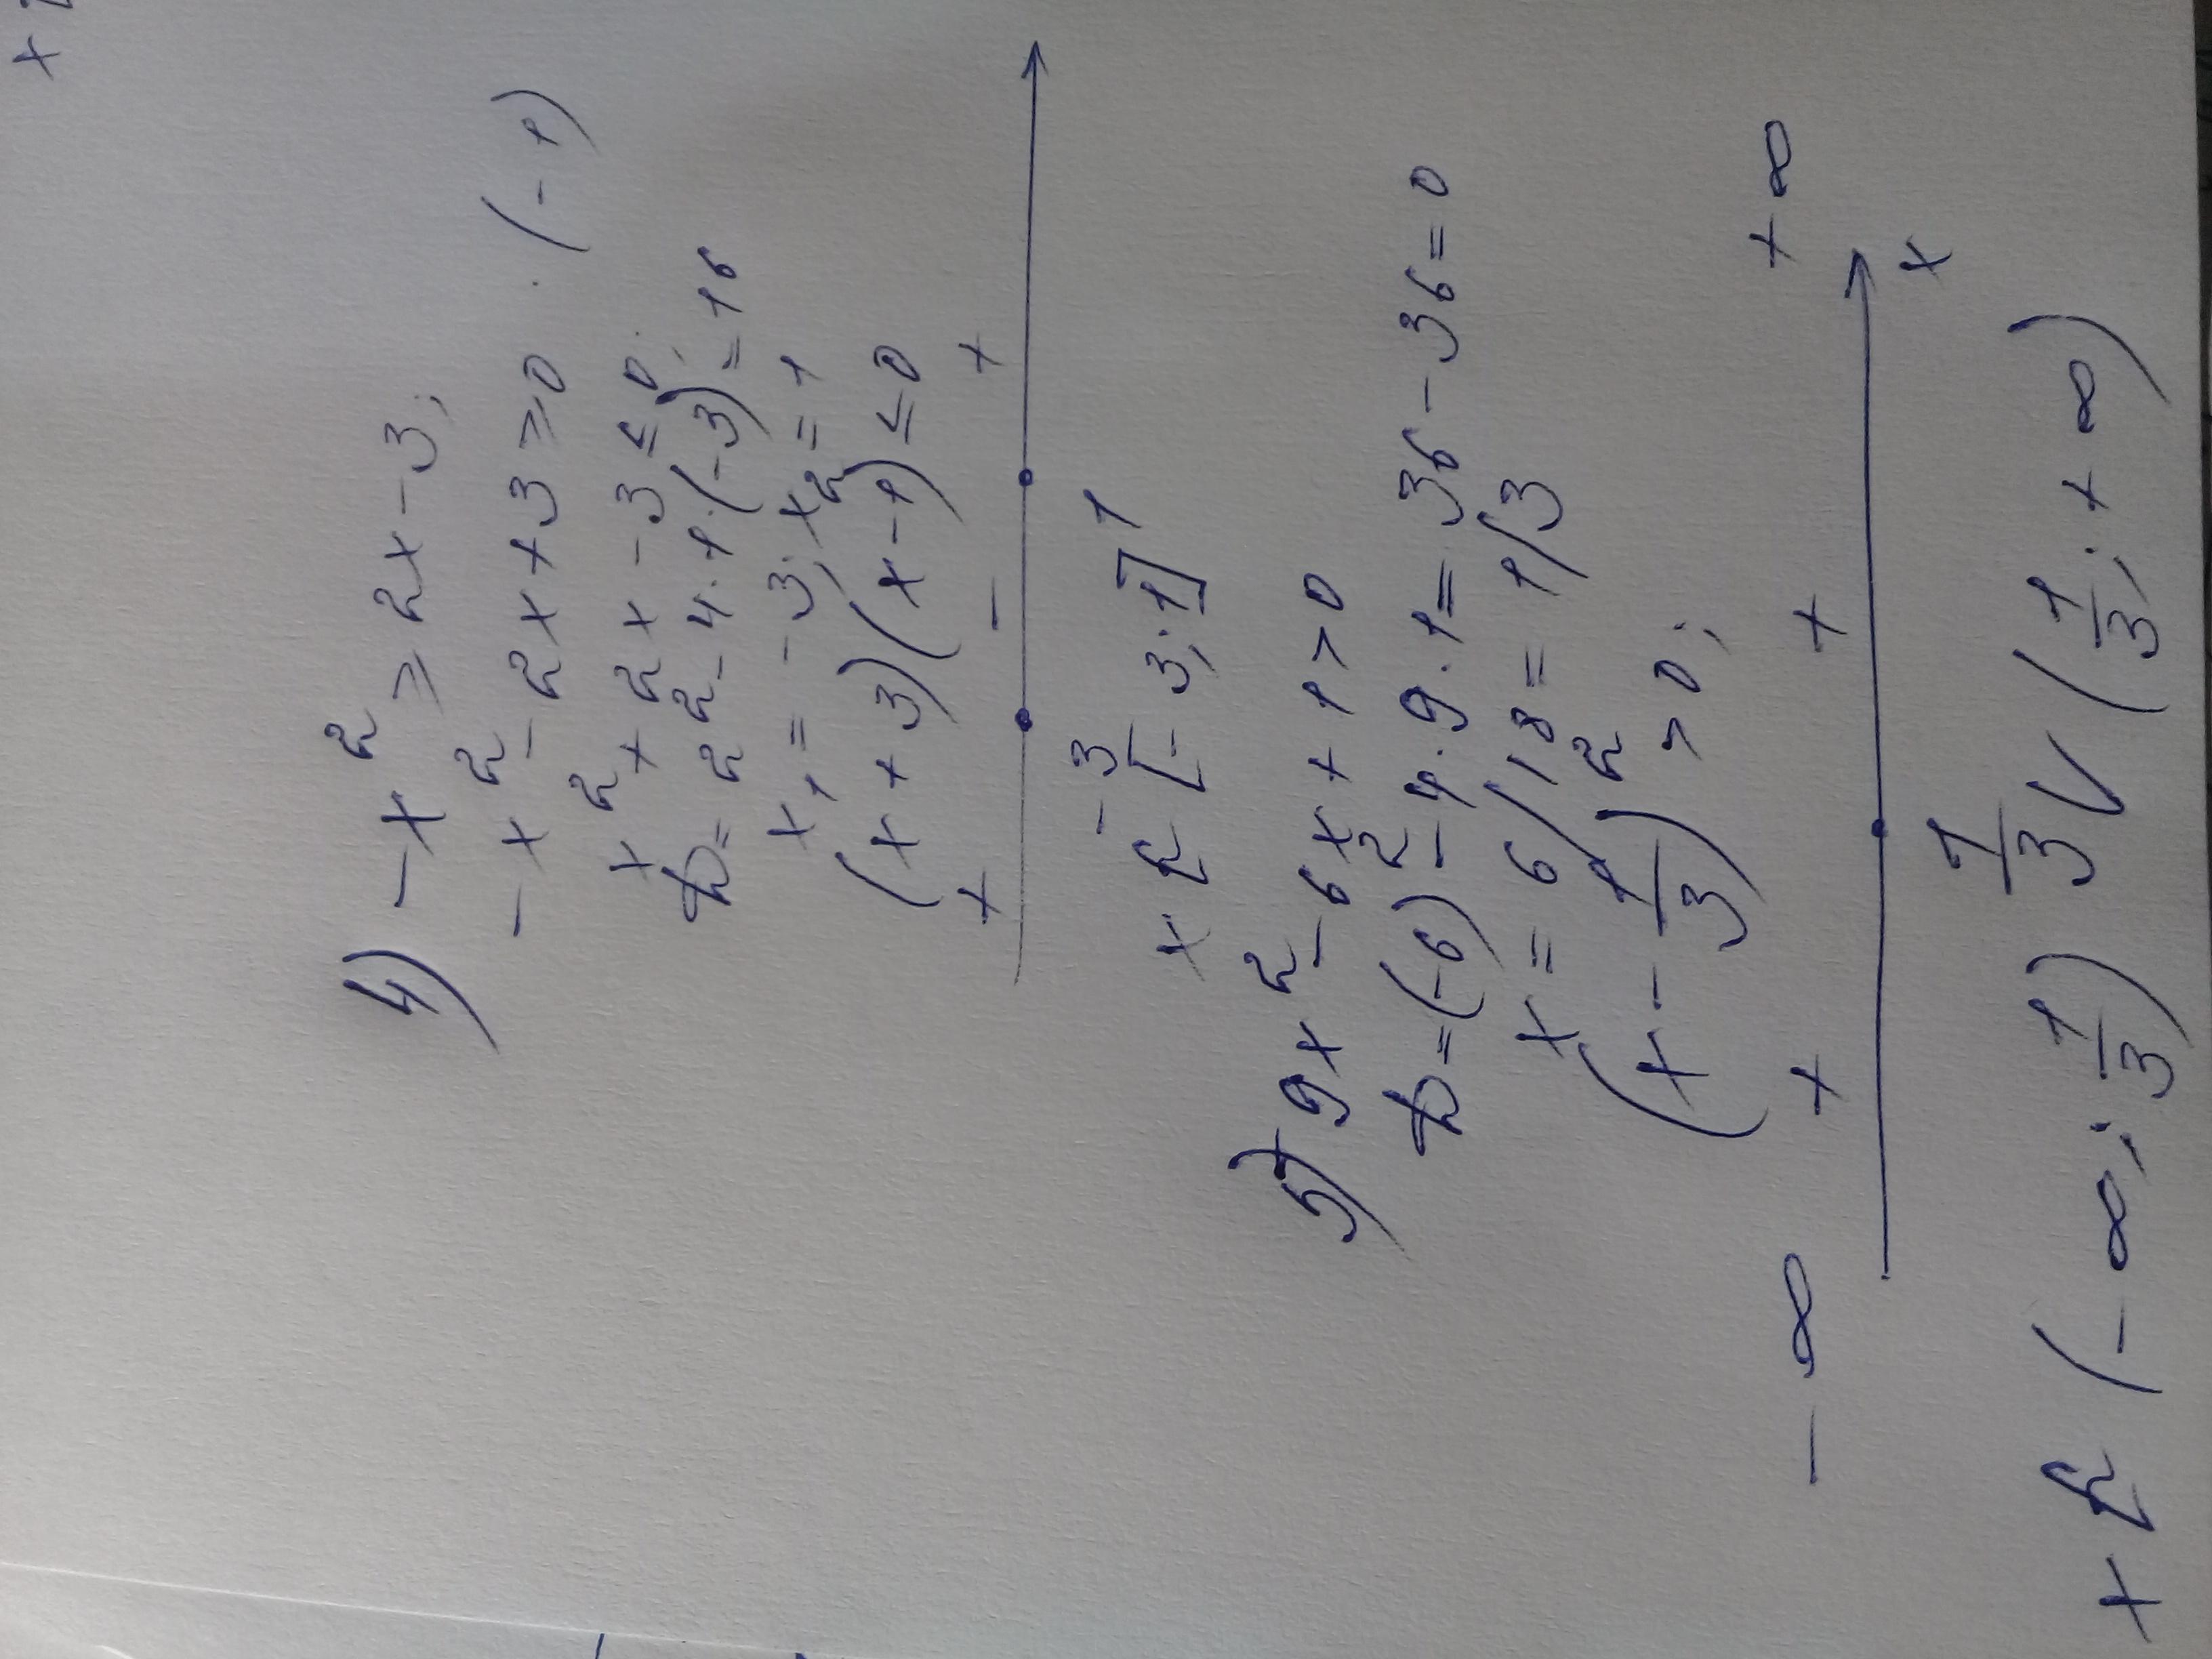 4) -x² ≥ 2x - 3;
-x² - 2x + 3 ≥ 0 · (-1)
x² + 2x - 3 ≤ 0;
D = 2² - 4·1·(-3) = 16
x₁ = -3; x₂ = 1
(x + 3)(x - 1) ≤ 0
+ - +
-3 1
x ∈ [-3; 1]
5) 9x² - 6x + 1 > 0
D = (-6)² - 4·9·1 = 36 - 36 = 0
x = 6/18 = 1/3
(x - 1/3)² > 0;
-∞ + + +∞
1/3 x
x ∈ (-∞; 1/3) ∪ (1/3; +∞)